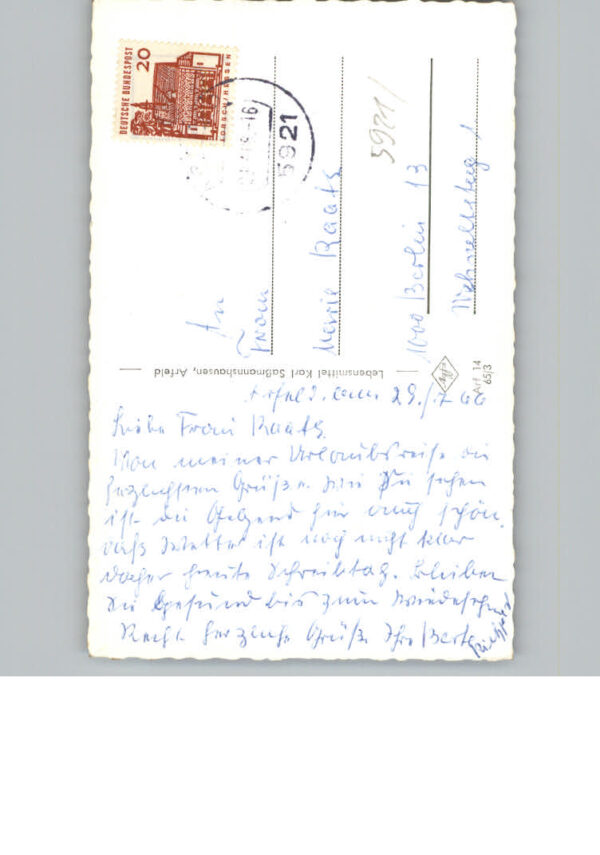 DEUTSCHE BUNDESPOST
20
LORSCH/HESSEN
-16
5921
5921/
An
Frau
Marie Raatz
1000 Berlin 13
Lebensmittel Karl Saßmannshausen, Arfeld
Agfa
Art. 14
65/3
Arfeld, am 29./7 66
Liebe Frau Raatz
Von meiner Urlaubsreise die
herzlichsten Grüße. Wie Sie sehen
ist die Gegend hier auch schön,
das Wetter ist noch nicht klar
daher heute Schreibtag. Bleiben
Sie Gesund bis zum Wiedersehn
Recht herzliche Grüße Ihre